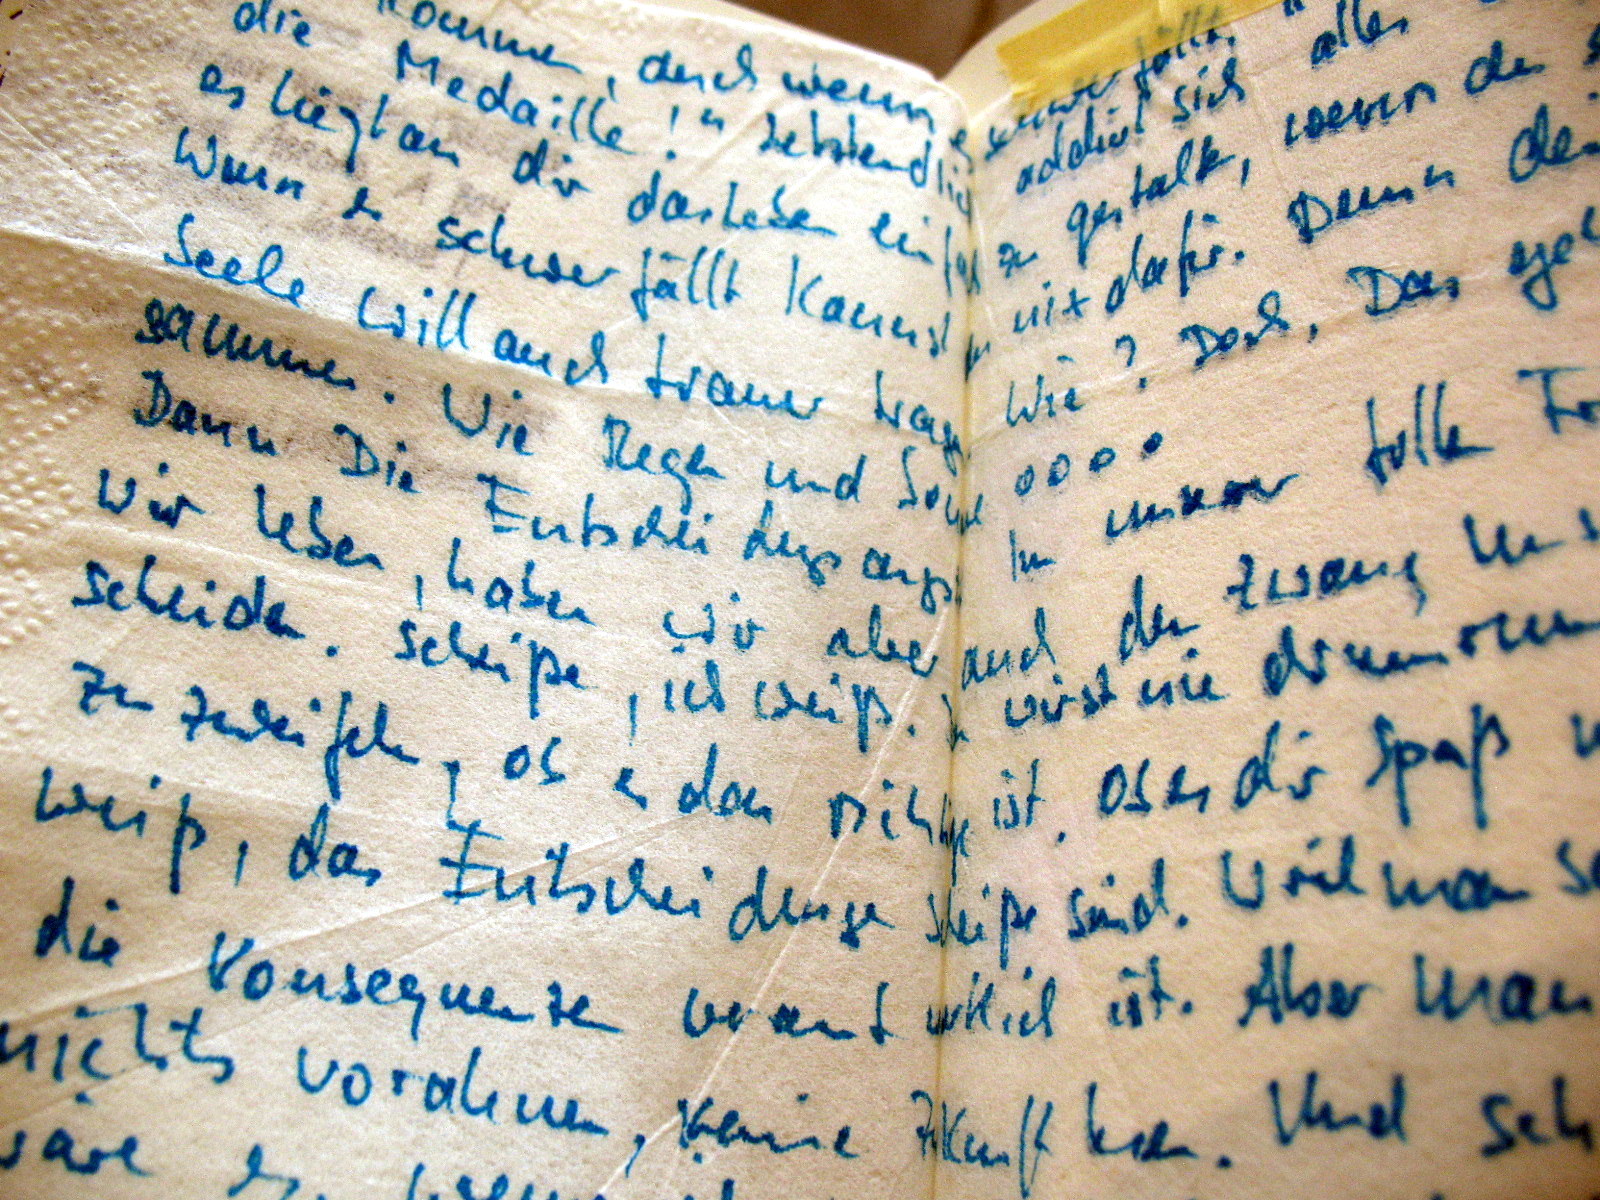 kommen, doch wenn schwer fällt
die Medaille!" Letztendlich addiert sich alles
es liegt an dir das Leben einfach zu gestalt, wenn du
Wenn es schwer fällt kannst du nix dafür. Denn dei
Seele will auch trauer trage Wie? Doch, Das geh
sammen. Wie Regen und Sonne oooo
Dann Die Entscheidungsangst In unserer tollen Fr
Wir leben, haben wir aber auch den Zwang Uns
scheiden. Scheiße, ich weiß. Du wirst nie drumrum
zu zweifeln, ob es das Richtige ist. Ob es dir Spaß
weiß, das Entscheidunge scheiße sind. Weil man se
die Konsequenzen verantwortlich ist. Aber man
nichts vorahnen, keine Zukunft lesen. Und sch
wäre es, wenn